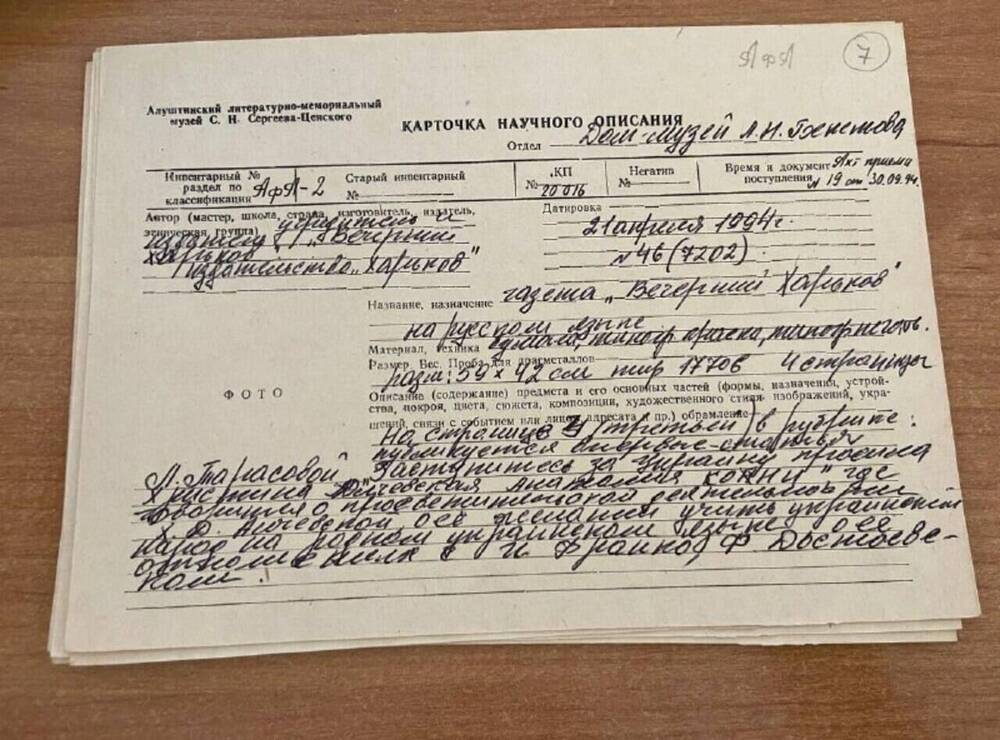 АфА
7
Алуштинский литературно-мемориальный
музей С. Н. Сергеева-Ценского
КАРТОЧКА НАУЧНОГО ОПИСАНИЯ
Отдел Дом-музей А.Н. Бекетова
Инвентарный №
раздел по
классификации АфА-2
Старый инвентарный
№
КП
№ 20016
Негатив
№
Время и документ Акт приема
поступления N 19 от 30.09.94.
Автор (мастер, школа, страна, изготовитель, издатель,
этническая группа) учредитель и
издатель "Вечерний
Харьков"
Издательство "Харьков"
Датировка
21 апреля 1994 г.
N 46 (7202)
Название, назначение газета "Вечерний Харьков"
на русском языке
Материал, техника бумага, типогр. краска, типогр. печать.
Размер. Вес. Проба для драгметаллов
разм: 59 х 42 см тир 17706 4 страницы
ФОТО
Описание (содержание) предмета и его основных частей (формы, назначения, устрой-
ства, покроя, цвета, сюжета, композиции, художественного стиля изображений, укра-
шений, связи с событием или лицом, адресата и пр.) обрамление
На странице 3 (третьей) в рубрике:
публикуется впервые статья
Л. Тарасовой "Заступитесь за Украину просила
Христина Алчевская" где
говорится о просветительской деятельности
Х. Д. Алчевской о её желании учить украинский
народ на родном украинском языке о её
отношениях с И Франко, Ф Достоевс-
ким.